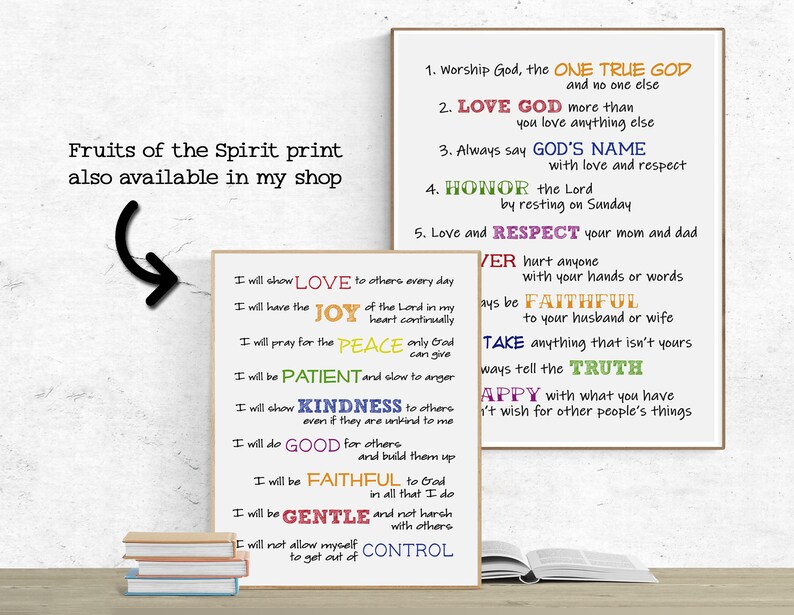 Fruits of the Spirit print
also available in my shop
1. Worship God, the ONE TRUE GOD
and no one else
2. LOVE GOD more than
you love anything else
3. Always say GOD'S NAME
with love and respect
4. HONOR the Lord
by resting on Sunday
5. Love and RESPECT your mom and dad
VER hurt anyone
with your hands or words
ays be FAITHFUL
to your husband or wife
TAKE anything that isn't yours
ways tell the TRUTH
APPY with what you have
n't wish for other people's things
I will show LOVE to others every day
I will have the JOY of the Lord in my
heart continually
I will pray for the PEACE only God
can give
I will be PATIENT and slow to anger
I will show KINDNESS to others
even if they are unkind to me
I will do GOOD for others
and build them up
I will be FAITHFUL to God
in all that I do
I will be GENTLE and not harsh
with others
I will not allow myself
to get out of CONTROL